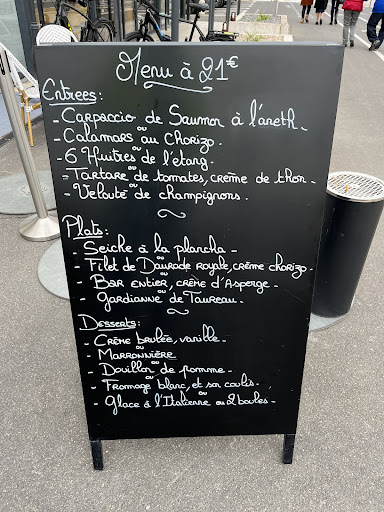 Menu à 21€
Entrees:
- Carpaccio de Saumon à l'aneth -
ou
- Calamars au Chorizo.
ou
- 6 Huitres de l'étang -
ou
- Tartare de tomates, crème de thon -
ou
- Velouté de champignons.
Plats:
- Seiche à la plancha -
ou
- Filet de Daurade royale, crème chorizo.
ou
- Bar entier, crème d'Asperge -
ou
- Gardianne de Taureau.
Desserts:
- Crème brulée, vanille -
ou
- Marronnière
ou
- Douillon de pomme -
ou
- Fromage blanc, et son coulis -
ou
- Glace à l'Italienne ou 2 boules -